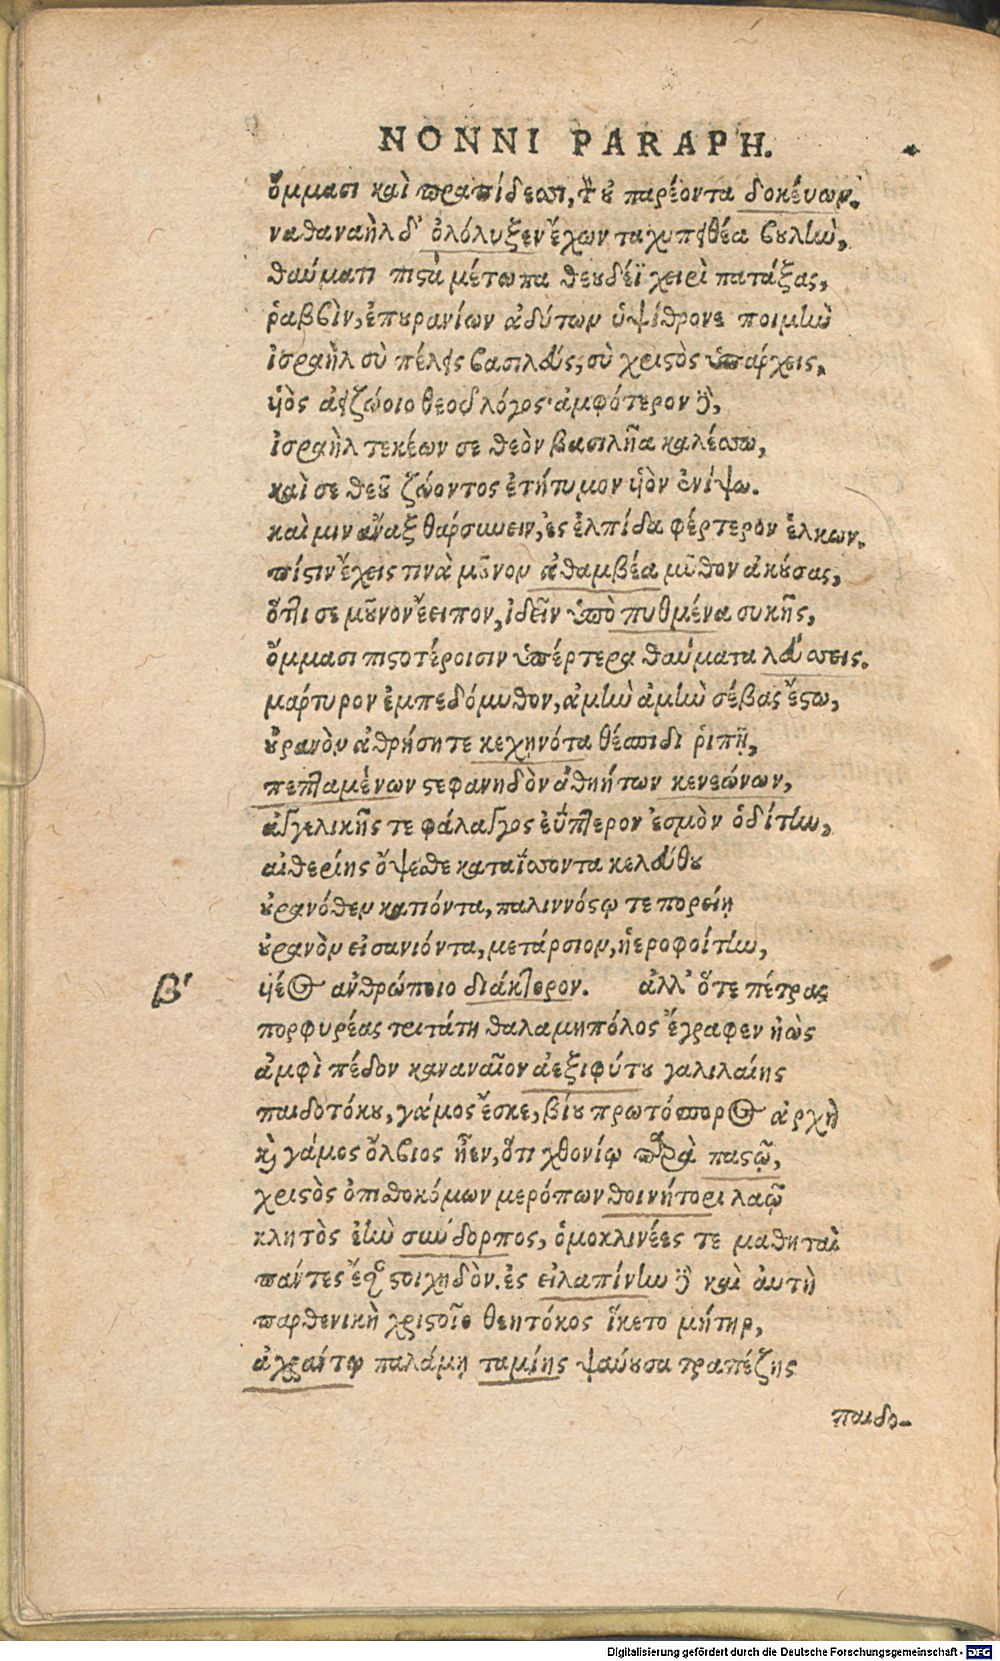 NONNI PARAPH.
ὄμμασι καὶ πραπίδεσσι, τὸν οὐ παρέοντα δοκεύων.
ναθαναὴλ δ' ὀλόλυξεν ἔχων ταχυπειθέα βουλὴν,
θαύματι πιστὰ μέτωπα θευδέϊ χειρὶ πατάξας,
ῥαββὶν, ἐπουρανίων ἀδύτων ὑψίθρονε ποιμὴν
ἰσραὴλ σὺ πέλεις βασιλεύς, σὺ χριστὸς ὑπάρχεις,
υἱὸς ἀειζώοιο θεοῦ λόγος· ἀμφότερον γὰρ,
ἰσραὴλ τεκέων σε θεὸν βασιλῆα καλέσσω,
καὶ σε θεοῦ ζώοντος ἐτήτυμον υἱὸν ἐνίψω.
καὶ μιν ἄναξ θάρσυνεν, ἐς ἐλπίδα φέρτερον ἕλκων.
πίστιν ἔχεις τινὰ μοῦνον ἀθαμβέα μῦθον ἀκούσας,
ὅττι σε μοῦνον ἔειπον, ἰδεῖν ὑπὸ πυθμένα συκῆς,
ὄμμασι πιστοτέροισιν ὑπέρτερα θαύματα λεύσσεις.
μάρτυρον ἐμπεδόμυθον, ἀμὴν ἀμὴν σέβας ἔστω,
οὐρανὸν ἀθρήσητε κεχηνότα θέσπιδι ῥιπῇ,
πεπταμένων στεφανηδὸν ἀθηήτων κενεώνων,
ἀγγελικῆς τε φάλαγγος ἐΰπτερον ἑσμὸν ὁδίτην,
αἰθερίης ὄψεσθε καταΐσσοντα κελεύθου
οὐρανόθεν κατιόντα, παλιννόστῳ τε πορείῃ
οὐρανὸν εἰσανιόντα, μετάρσιον, ἠεροφοίτην,
β' υἱέος ἀνθρώποιο διάκτορον. ἀλλ' ὅτε πέτρας
πορφυρέας τριτάτη θαλαμηπόλος ἔγραφεν ἠὼς
ἀμφὶ πέδον καναναῖον ἀεξιφύτου γαλιλαίης
παιδοτόκου, γάμος ἔσκε, βίου πρωτόσπορος ἀρχὴ
καὶ γάμος ὄλβιος ἦεν, ὅτι χθονίῳ παρὰ παστῷ,
χριστὸς ὀπιθοκόμων μερόπων θοινήτορι λαῷ
κλητὸς ἐὴν σύνδορπος, ὁμοκλινέες τε μαθηταὶ
πάντες ἔσαν στοιχηδὸν. ἐς εἰλαπίνην γὰρ καὶ αὐτὴ
παρθενικὴ χριστοῖο θεητόκος ἵκετο μήτηρ,
ἀχράντῳ παλάμῃ ταμίης ψαύουσα τραπέζης
παιδο-
Digitalisierung gefördert durch die Deutsche Forschungsgemeinschaft - DFG